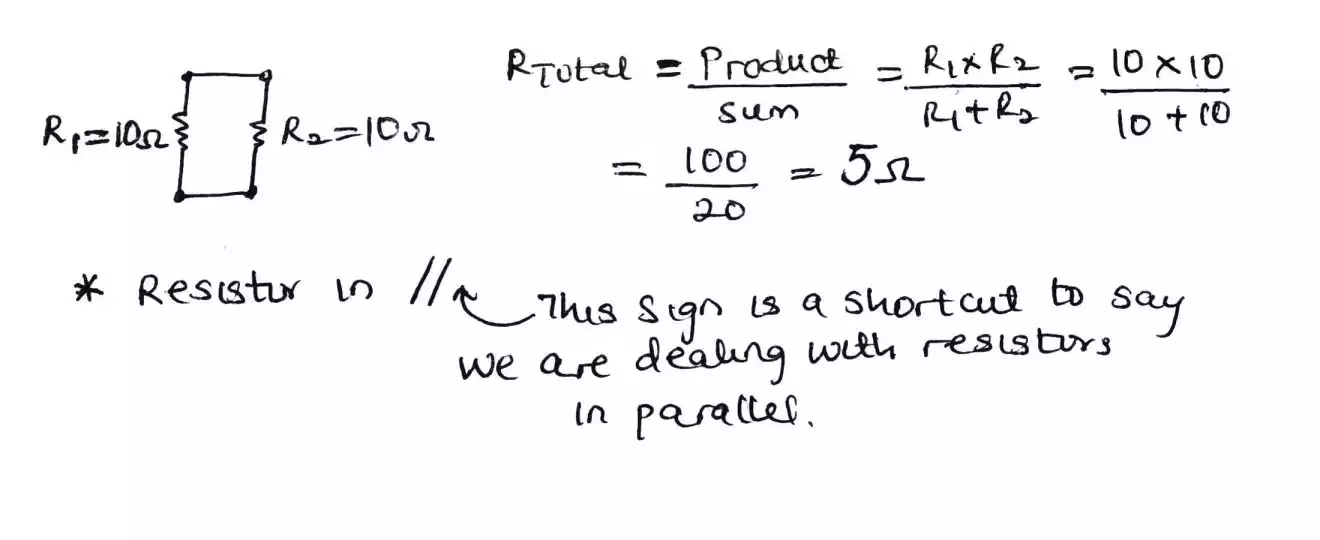 R1=10Ω
R2=10Ω
RTotal = Product/sum = R1×R2/R1+R2 = 10×10/10+10
= 100/20 = 5Ω
* Resistor in // This sign is a shortcut to say
we are dealing with resistors
in parallel.